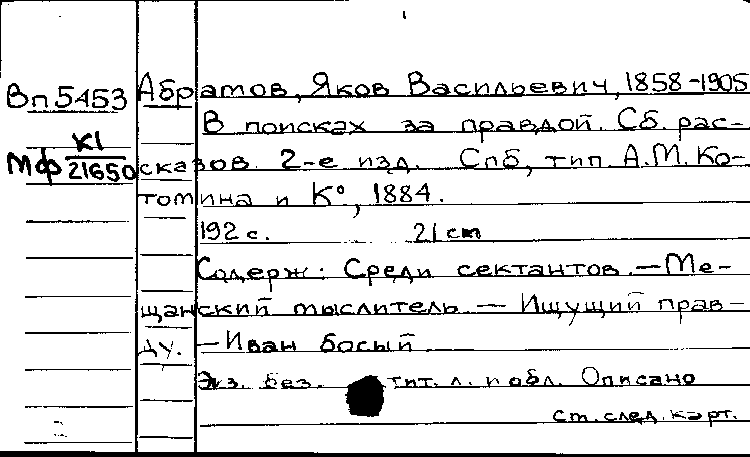 Вп5453 Абрамов, Яков Васильевич, 1858-1905
В поисках за правдой. Сб. рас-
Мф К1/21650 сказов. 2-е изд. Спб, тип. А.М. Ко-
томина и К°, 1884.
192 с. 21 см
Содерж: Среди сектантов. — Ме-
щанский мыслитель. — Ищущий прав-
ду. — Иван босый
Экз. без. тит. л. и обл. Описано
ст. след. карт.